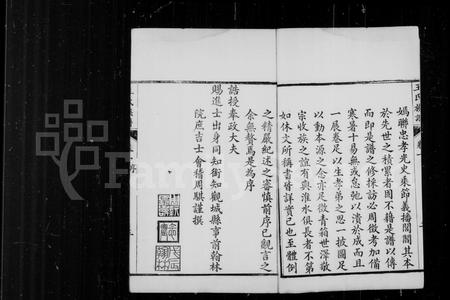 媯聯忠孝光史乘節義播閭閻其本
於先世之積累者固不藉是譜以傳
而即是譜之修採訪必周徵考加備
寒暑十易無或怠弛以潰於成而且
一展卷足以生孝弟之思一披圖足
以動本源之念亦足徵青箱世澤敬
宗收族之誼有與淮水俱長者不第
如休文所稱書皆詳實已也至體例
之精嚴紀述之審慎前序已覼言之
余無贅焉是為序
誥授奉政大夫
賜進士出身同知銜知觀城縣事前翰林
院庶吉士會稽周騏謹撰
王氏族譜
序